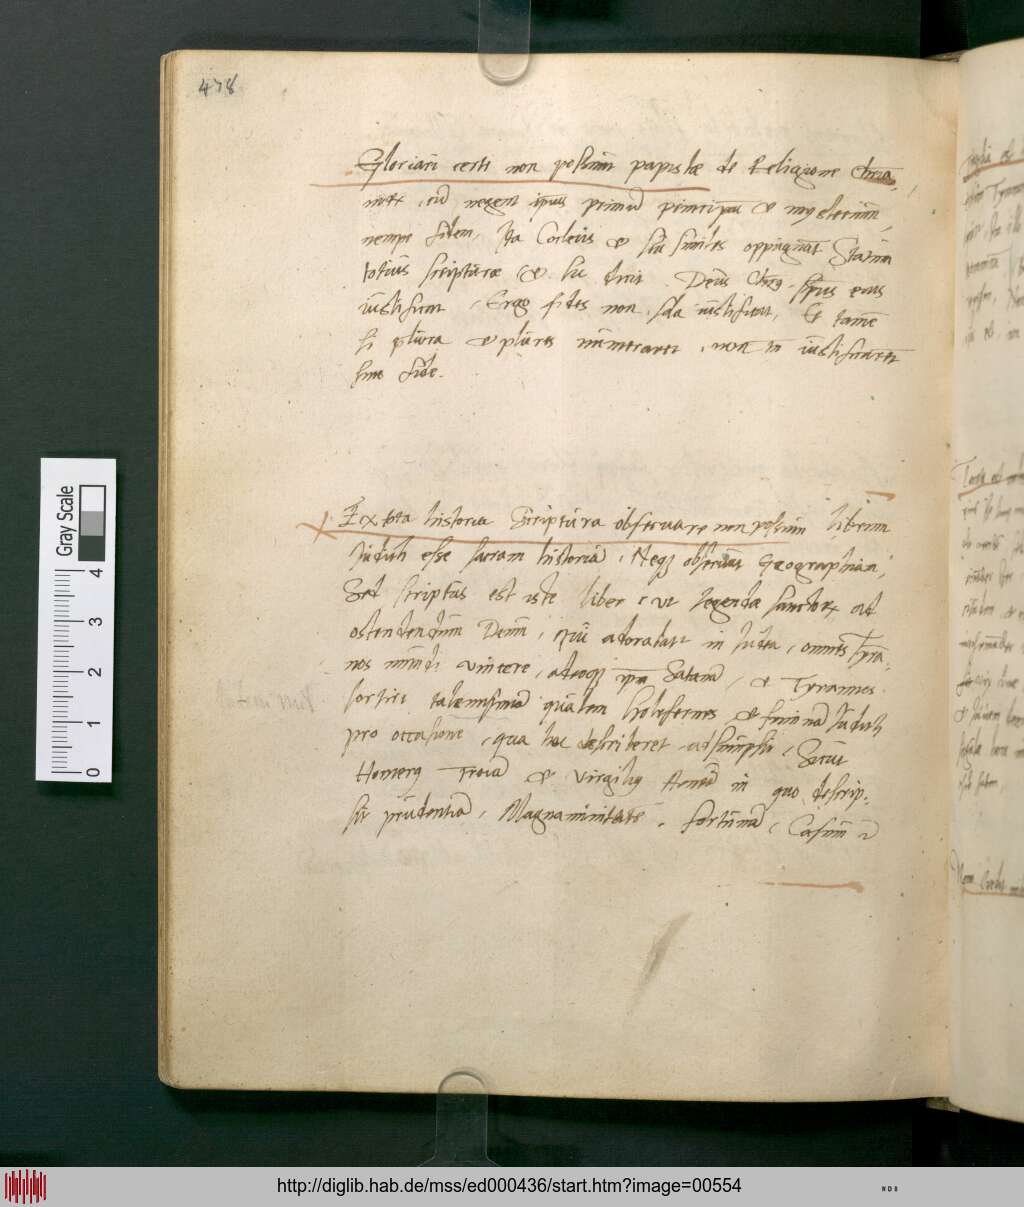 478
Gloriari certe non possunt papistae de Religione Christia,
nor, cū negent ipsius primū principiū & mysterium,
nempe fidem, Ita Cocleus & sui similes oppugnāt
totius scripturae & sic dicit. Deus Chrs, spus eius
iustificant, Ergo fides non sola iustificat, Et tamē
si plura & plures numerarēt, non tn̄ iustificarēt
sine fide.
Ex tota historia Scriptura observare non possum librum
Judith esse sacram historiā, Neqz observat Geographiam,
Sed scriptus est iste liber, ut legenda sanctor, ad
ostendendum Deum, qui adorabatur in Judea, omnes Tyrā,
nos mundi vincere, adeoqz ipm Satanā, & Tyrannos.
fortis talemqualem Holofernes & feminā Judith
pro occasione, qua hec describeret adsumpsit, Sicut
Homerq Troiā & Virgiliq Aeneā in quo descrip,
sit prudentiā, Magnanimitatē, fortunā, Casum
Gray Scale
0 1 2 3 4
http://diglib.hab.de/mss/ed000436/start.htm?image=00554